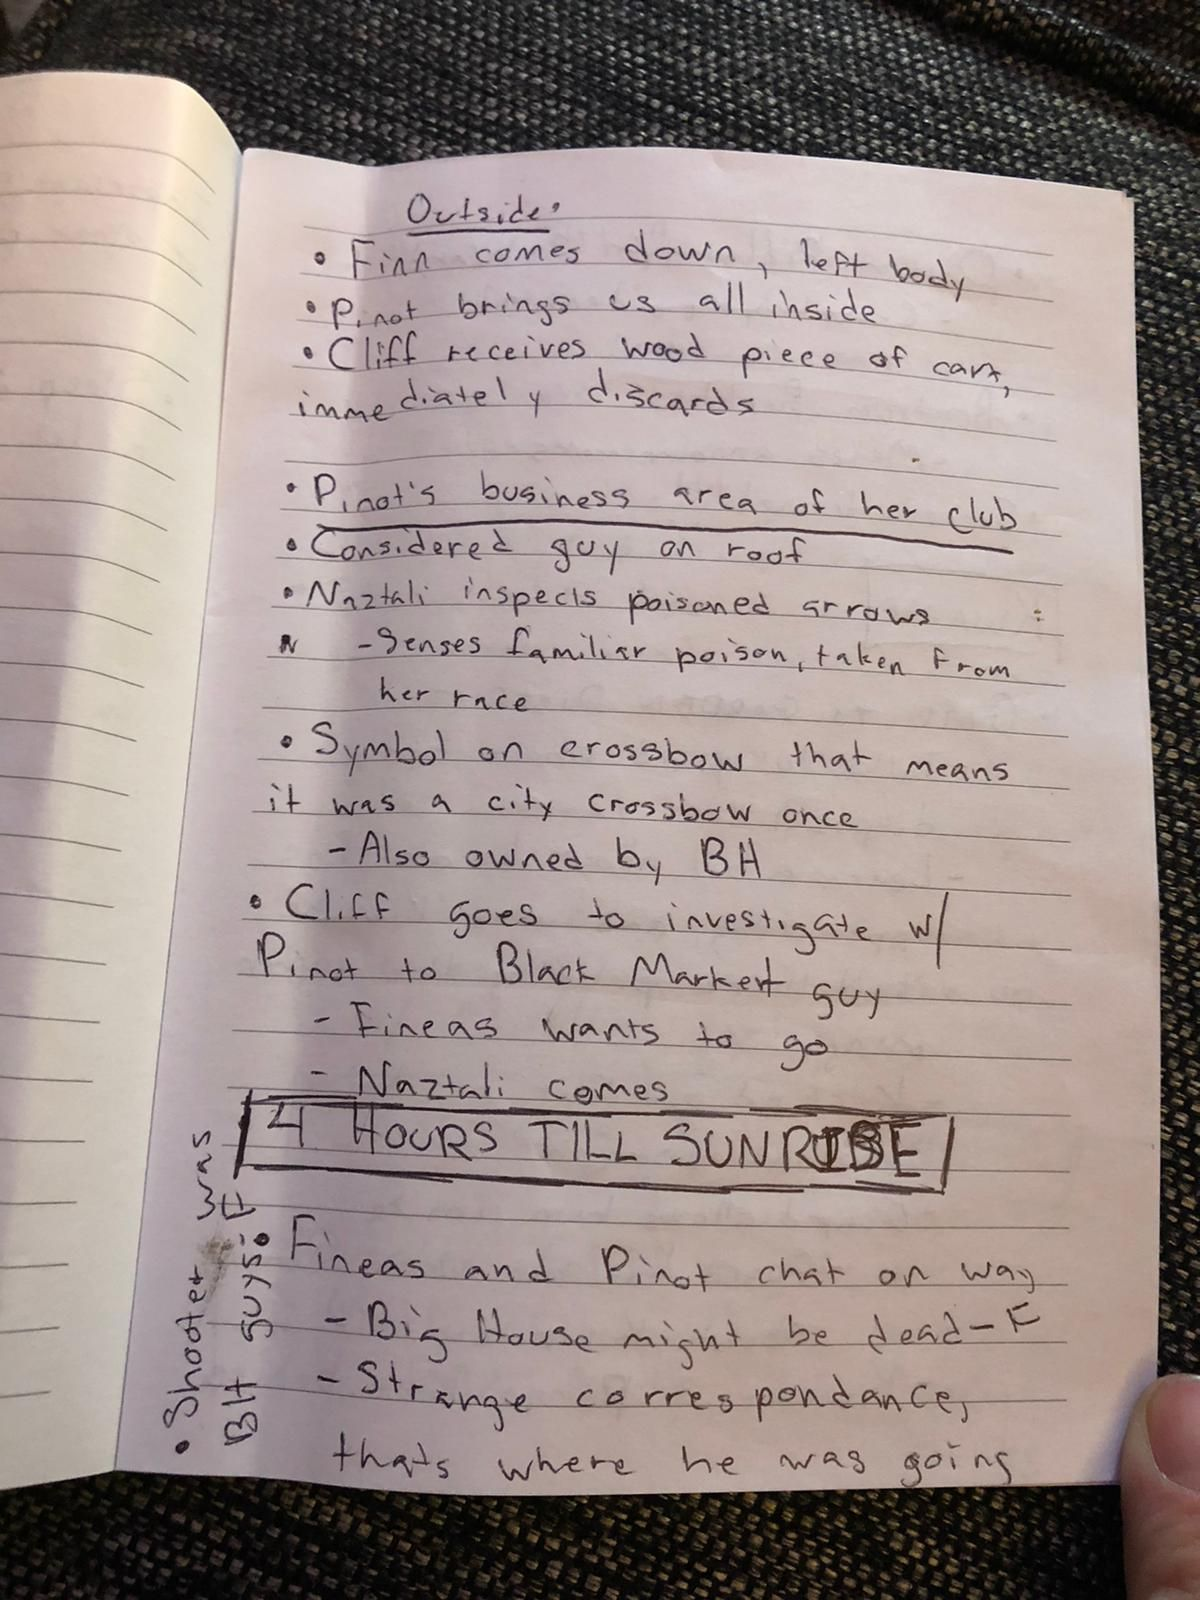 Outside:
• Finn comes down, left body
• Pinot brings us all inside
• Cliff receives wood piece of cart,
immediately discards
• Pinot's business area of her club
• Considered guy on roof
• Naztali inspects poisoned arrows
N - Senses familiar poison, taken from
her race
• Symbol on crossbow that means
it was a city crossbow once
- Also owned by BH
• Cliff goes to investigate w/
Pinot to Black Market guy
- Fineas wants to go
- Naztali comes
4 HOURS TILL SUNRISE
• Fineas and Pinot chat on way
- Big House might be dead - F
- Strange correspondance,
thats where he was going
• Shooter was
BH guys: F